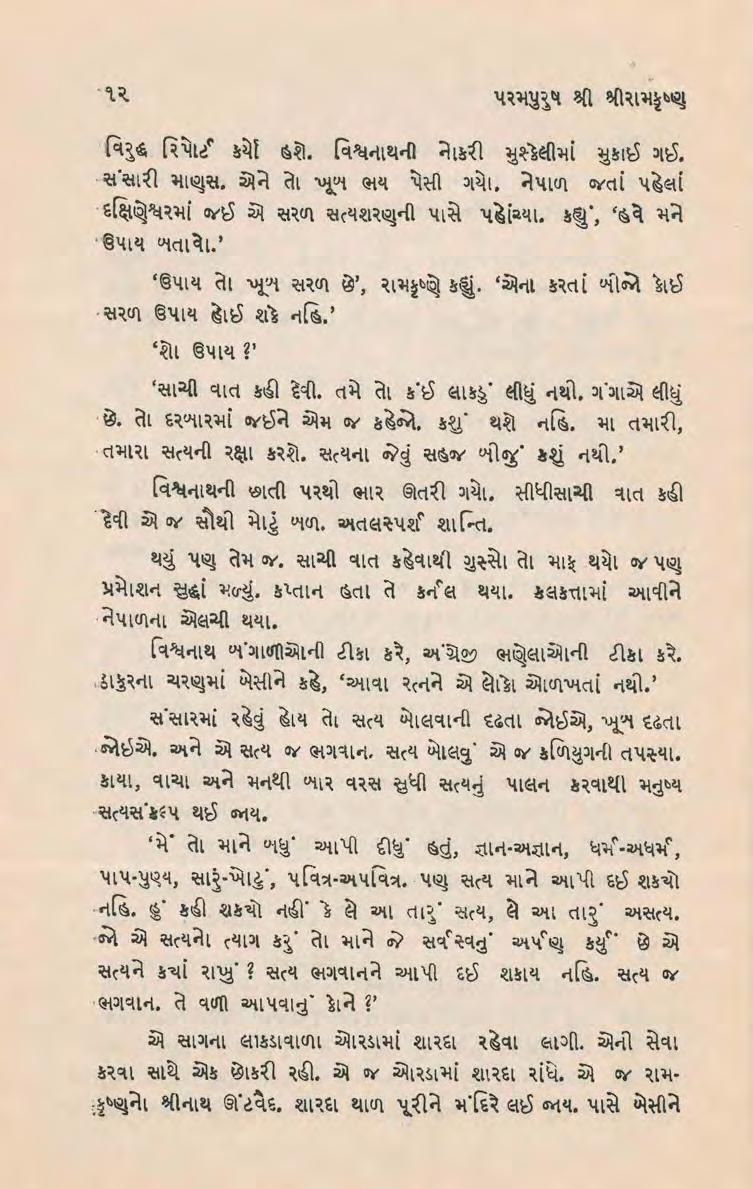 ૧૨ પરમપુરુષ શ્રી શ્રીરામકૃષ્ણ
વિરુદ્ધ રિપોર્ટ કર્યો હશે. વિશ્વનાથની નોકરી મુશ્કેલીમાં મુકાઈ ગઈ.
સંસારી માણુસ. એને તો ખૂબ ભય પેસી ગયો. નેપાળ જતાં પહેલાં
દક્ષિણેશ્વરમાં જઈ એ સરળ સત્યશરણની પાસે પહોંચ્યા. કહ્યું, ‘હવે મને
ઉપાય બતાવો.’
‘ઉપાય તો ખૂબ સરળ છે’, રામકૃષ્ણે કહ્યું. ‘એના કરતાં બીજો કોઈ
સરળ ઉપાય હોઈ શકે નહિ.’
‘શો ઉપાય ?’
‘સાચી વાત કહી દેવી. તમે તો કંઈ લાકડું લીધું નથી. ગંગાએ લીધું
છે. તો દરબારમાં જઈને એમ જ કહેજો. કશું થશે નહિ. મા તમારી,
તમારા સત્યની રક્ષા કરશે. સત્યના જેવું સહજ બીજું કશું નથી.’
વિશ્વનાથની છાતી પરથી ભાર ઊતરી ગયો. સીધીસાચી વાત કહી
દેવી એ જ સૌથી મોટું બળ. અતલસ્પર્શ શાન્તિ.
થયું પણ તેમ જ. સાચી વાત કહેવાથી ગુસ્સો તો માફ થયો જ પણ
પ્રમોશન સુદ્ધાં મળ્યું. કપ્તાન હતા તે કર્નલ થયા. કલકત્તામાં આવીને
નેપાળના એલચી થયા.
વિશ્વનાથ બંગાળીઓની ટીકા કરે, અંગ્રેજી ભણેલાઓની ટીકા કરે.
ઠાકુરના ચરણમાં બેસીને કહે, ‘આવા રત્નને એ લોકો ઓળખતાં નથી.’
સંસારમાં રહેવું હોય તો સત્ય બોલવાની દઢતા જોઈએ, ખૂબ દઢતા
જોઈએ. અને એ સત્ય જ ભગવાન. સત્ય બોલવું એ જ કળિયુગની તપસ્યા.
કાયા, વાચા અને મનથી બાર વરસ સુધી સત્યનું પાલન કરવાથી મનુષ્ય
સત્યસંકલ્પ થઈ જાય.
‘મેં તો માને બધું આપી દીધું હતું, જ્ઞાન-અજ્ઞાન, ધર્મ-અધર્મ,
પાપ-પુણ્ય, સારું-ખોટું, પવિત્ર-અપવિત્ર. પણ સત્ય માને આપી દઈ શકયો
નહિ. હું કહી શકયો નહીં કે લે આ તારું સત્ય, લે આ તારું અસત્ય.
જો એ સત્યનો ત્યાગ કરું તો માને જે સર્વસ્વનું અર્પણ કર્યું છે એ
સત્યને કયાં રાખું ? સત્ય ભગવાનને આપી દઈ શકાય નહિ. સત્ય જ
ભગવાન. તે વળી આપવાનું કોને ?’
એ સાગના લાકડાવાળા ઓરડામાં શારદા રહેવા લાગી. એની સેવા
કરવા સાથે એક છોકરી રહી. એ જ ઓરડામાં શારદા રાંધે. એ જ રામ-
કૃષ્ણનો શ્રીનાથ ઊંટવૈદ. શારદા થાળ પૂરીને મંદિરે લઈ જાય. પાસે બેસીને